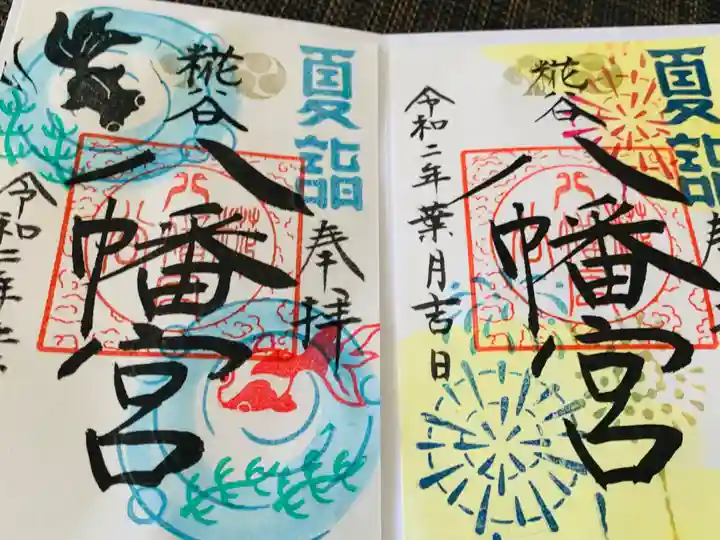 夏詣
奉拝
糀谷
八幡宮
令和二年
夏詣
奉
糀谷
八幡宮
令和二年葉月吉日